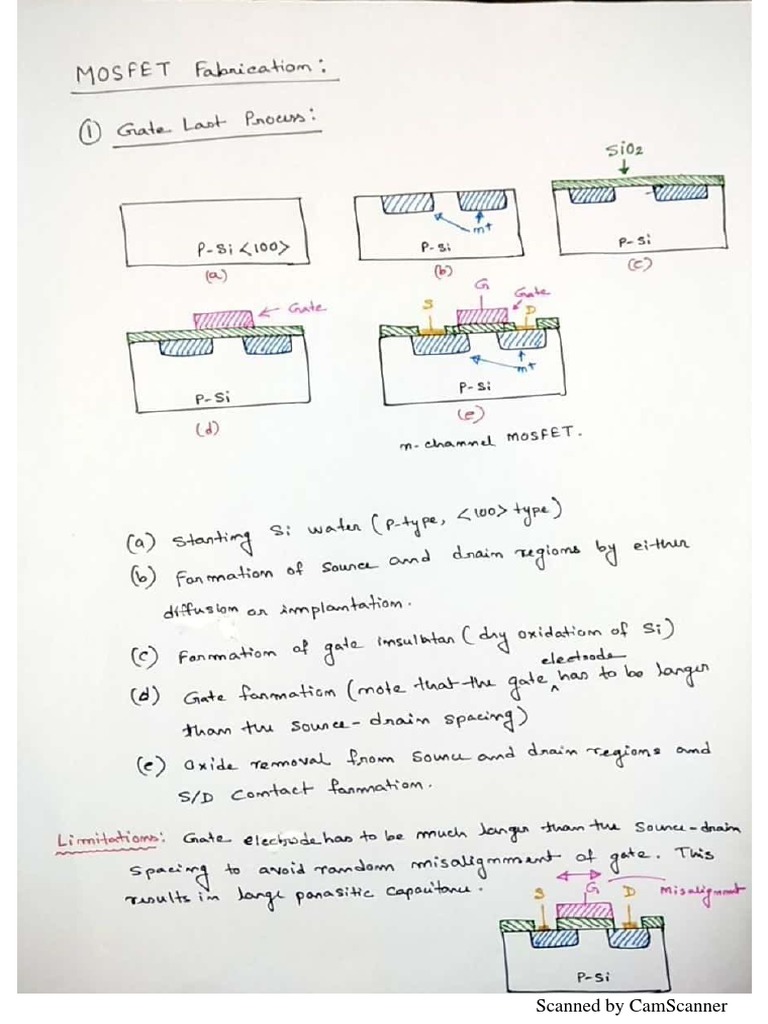 MOSFET Fabrication:
① Gate Last Process:
SiO2
P-Si <100>
(a)
n+
P-Si
(b)
P-Si
(c)
Gate
P-Si
(d)
S
G
Gate
D
n+
P-Si
(e)
n-channel MOSFET.
(a) Starting Si wafer (P-type, <100> type)
(b) Formation of source and drain regions by either
diffusion or implantation.
(c) Formation of gate insulator (dry oxidation of Si)
electrode
(d) Gate formation (note that the gate ^ has to be larger
than the source-drain spacing)
(e) Oxide removal from source and drain regions and
S/D contact formation.
Limitations: Gate electrode has to be much larger than the source-drain
spacing to avoid random misalignment of gate. This
results in large parasitic capacitance.
S
G
D
Misalignment
P-Si
Scanned by CamScanner